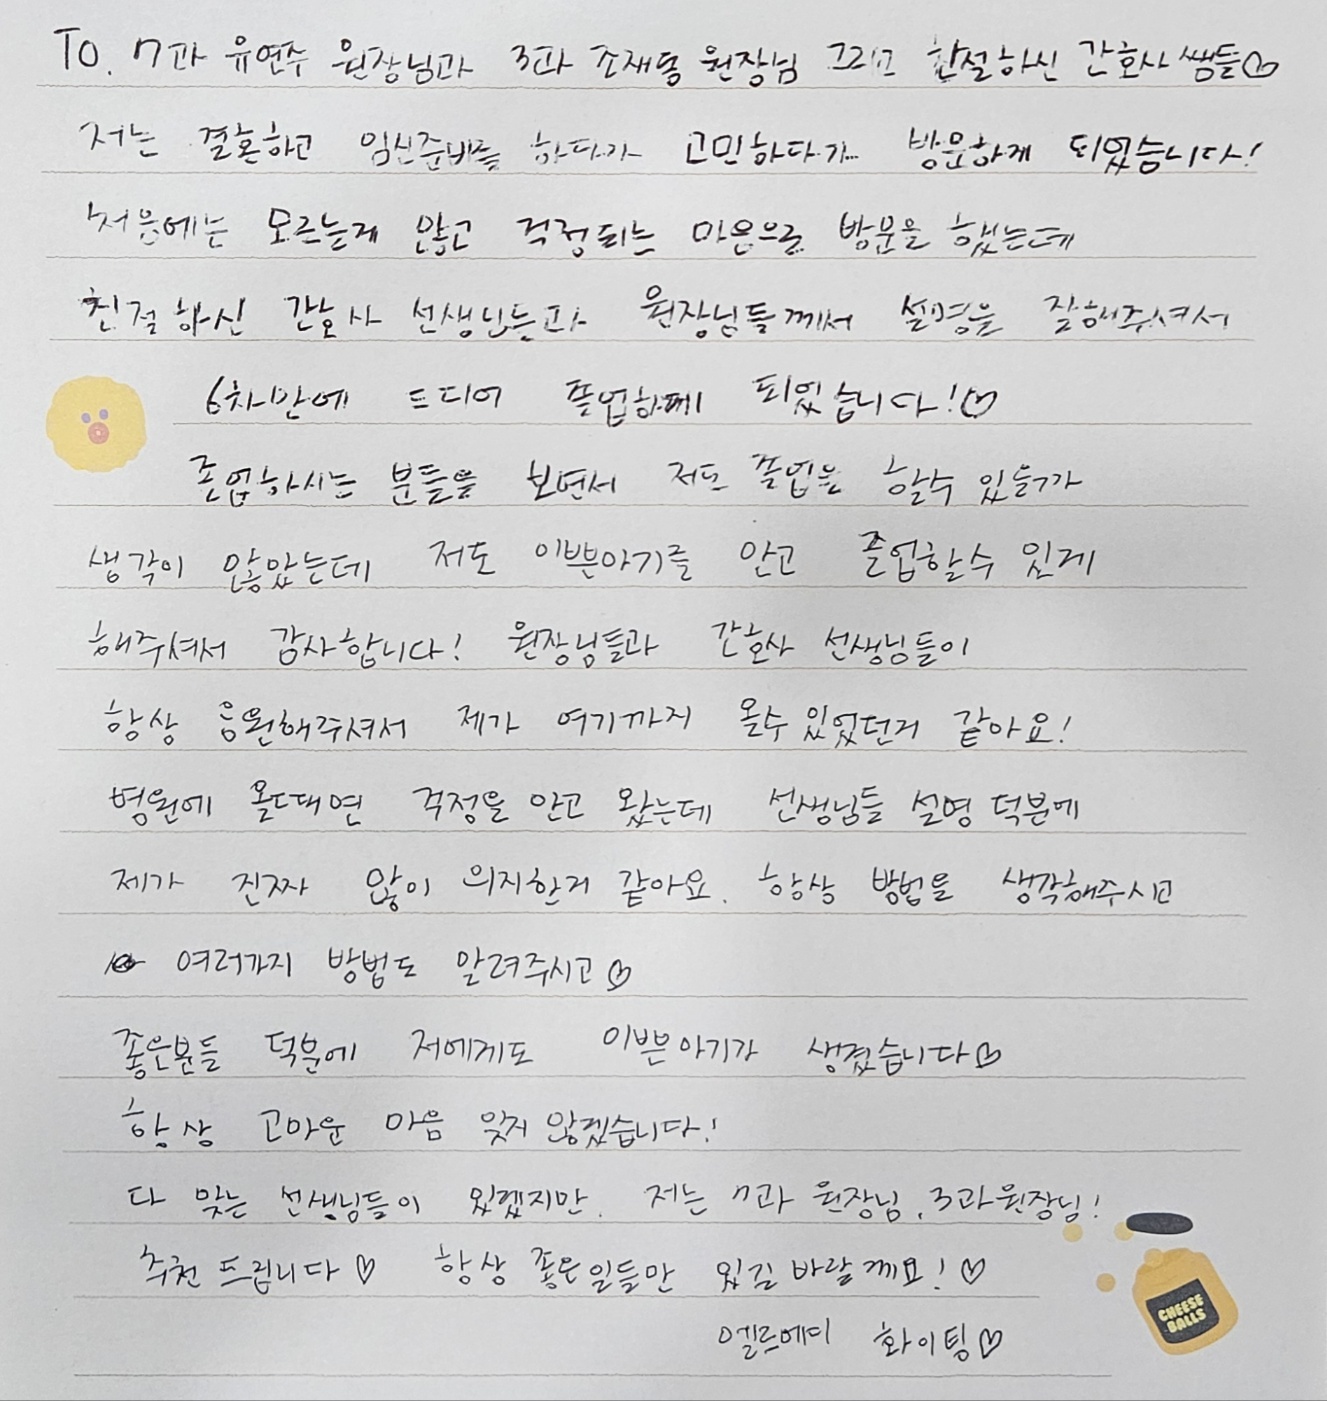 To. 7과 유연수 원장님과 3과 조재동 원장님 그리고 친절하신 간호사 쌤들♡
저는 결혼하고 임신준비를 하다가 고민하다가 방문하게 되었습니다!
처음에는 모르는게 많고 걱정되는 마음으로 방문을 했는데
친절하신 간호사 선생님들과 원장님들께서 설명을 잘해주셔서
6차만에 드디어 졸업하게 되었습니다!♡
졸업하시는 분들을 보면서 저도 졸업을 할수 있을가
생각이 많았는데 저도 이쁜아기를 안고 졸업할수 있게
해주셔서 감사합니다! 원장님들과 간호사 선생님들이
항상 응원해주셔서 제가 여기까지 올수 있었던거 같아요!
병원에 올때면 걱정을 안고 왔는데 선생님들 설명 덕분에
제가 진짜 많이 의지한거 같아요. 항상 방법을 생각해주시고
여러가지 방법도 알려주시고♡
좋은분들 덕분에 저에게도 이쁜아기가 생겼습니다♡
항상 고마운 마음 잊지 않겠습니다!
다 맞는 선생님들이 있겠지만. 저는 7과 원장님, 3과원장님!
추천 드립니다♡ 항상 좋은일들만 있길 바랄께요!♡
엘르에디 화이팅♡
CHEESE
BALLS